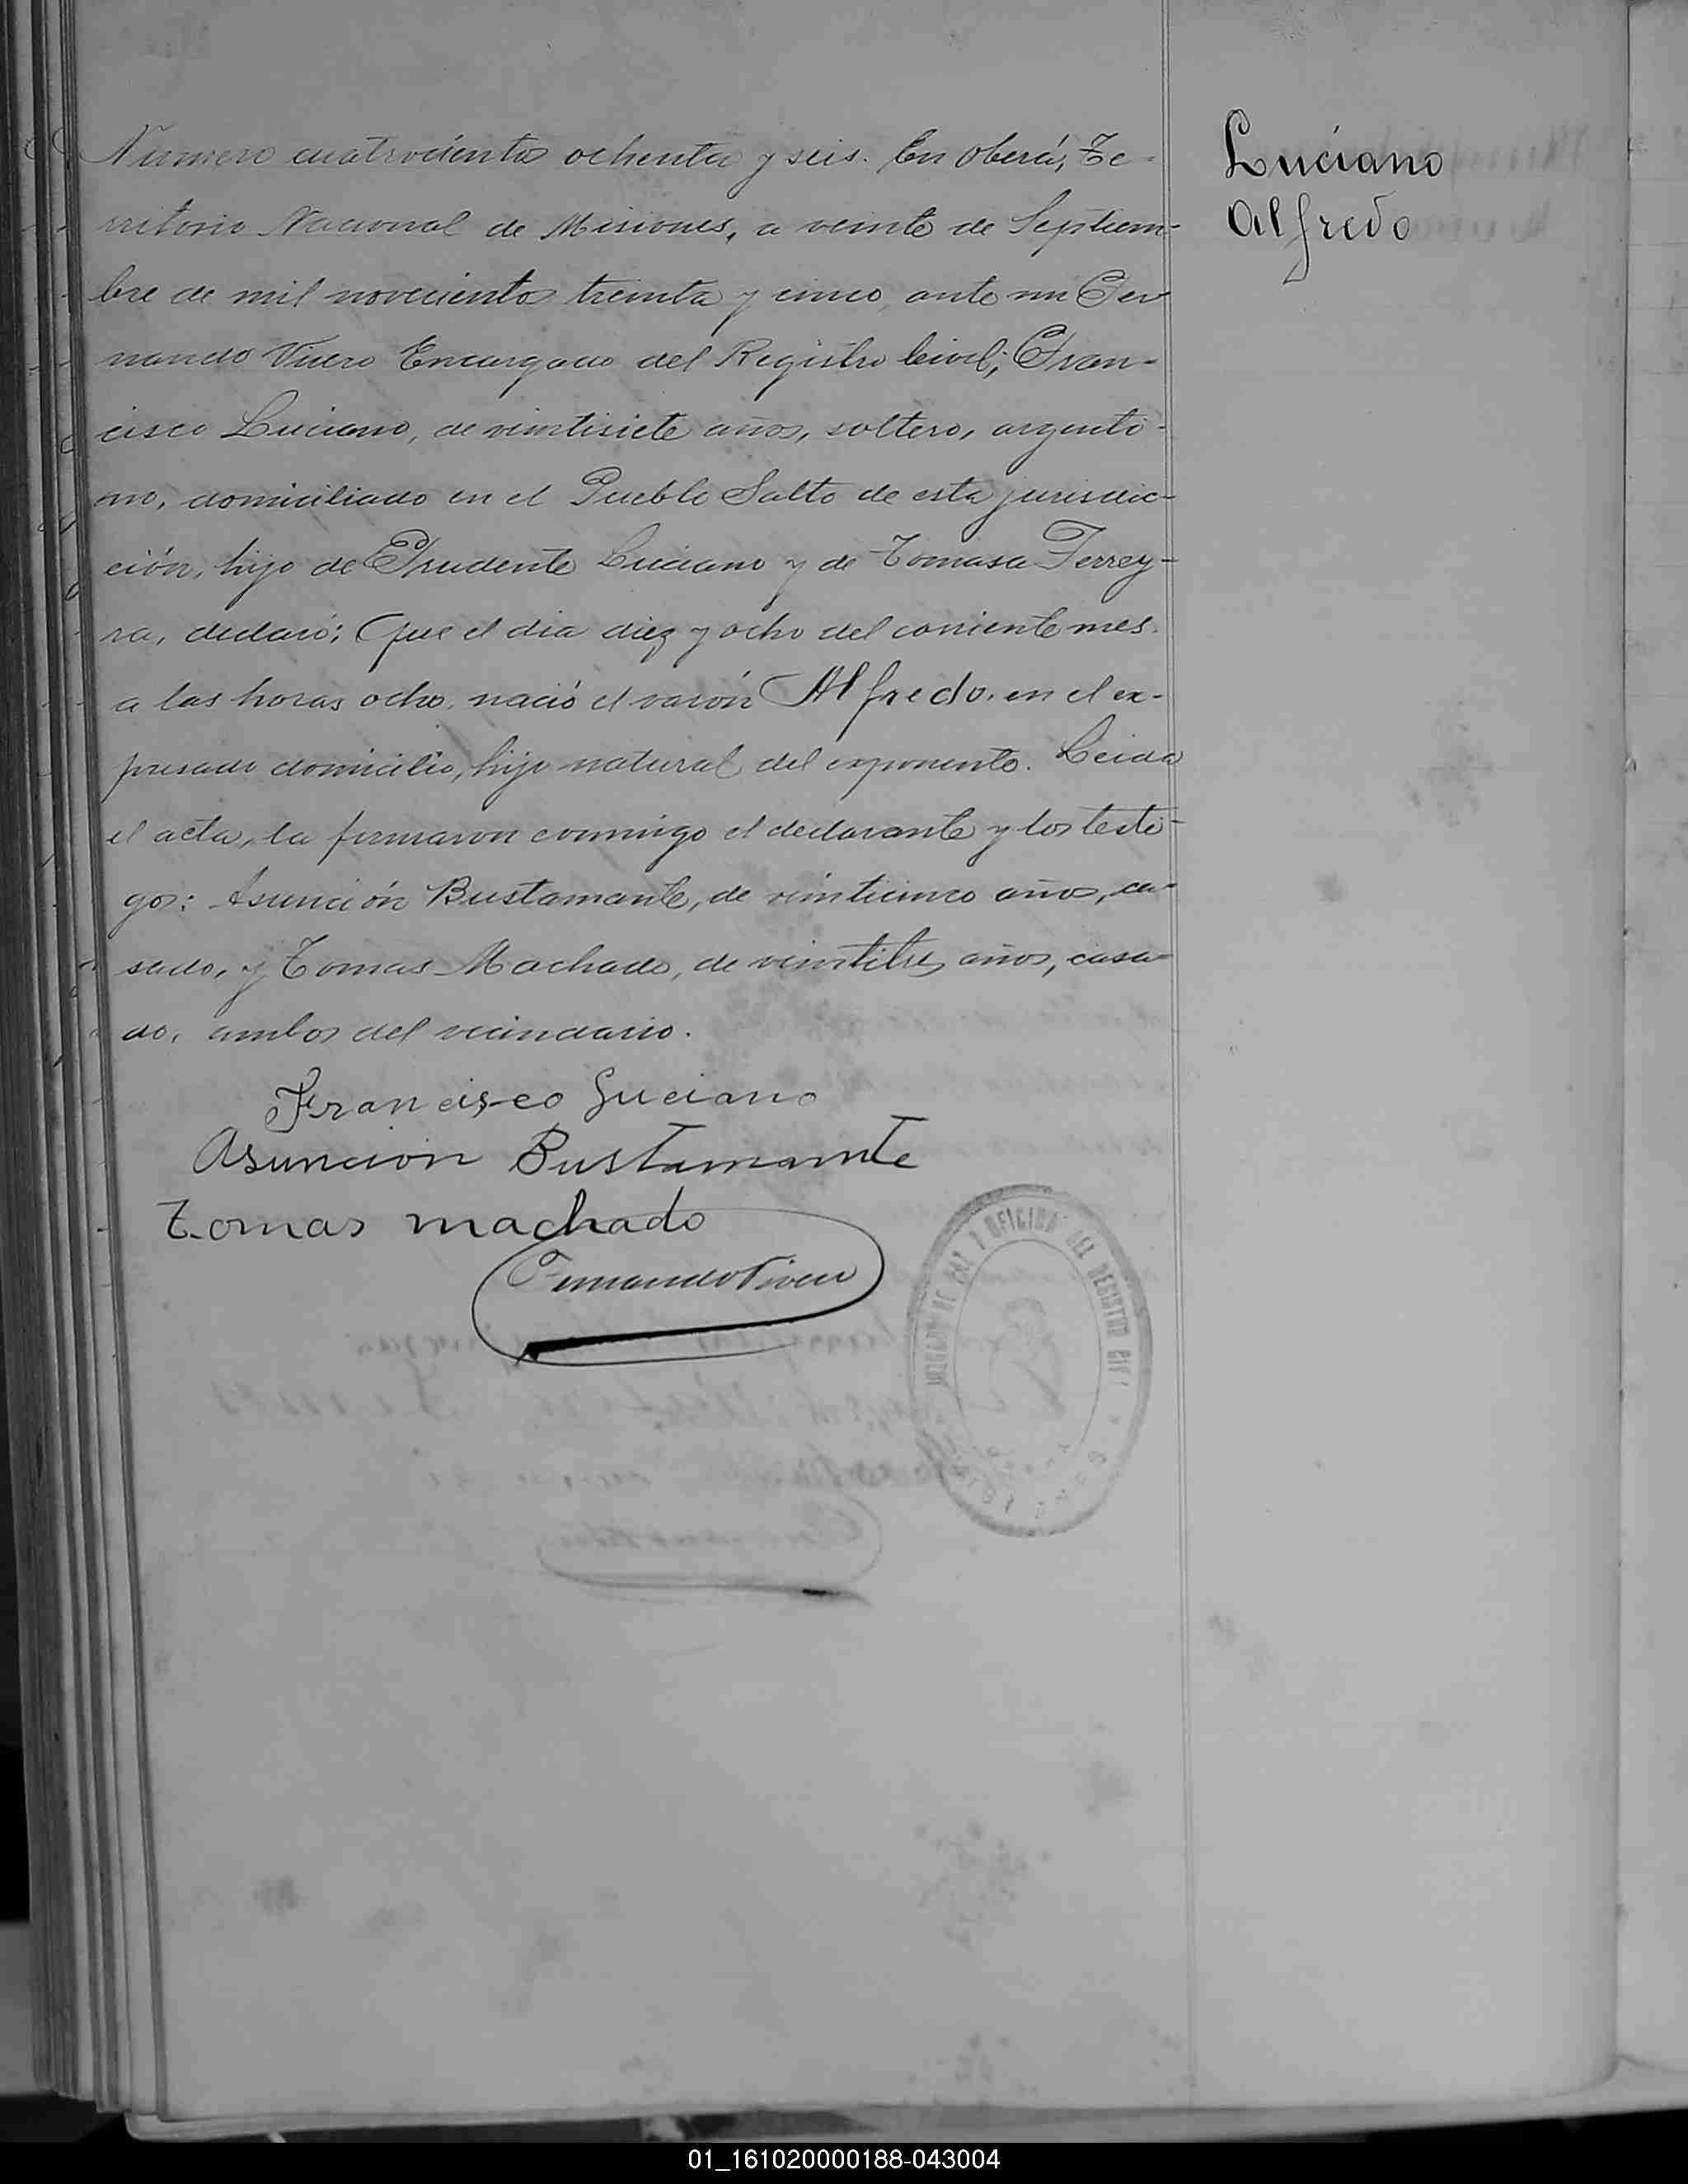 Numero cuatrocientos ochenta y seis. En Oberá, Te-
rritorio Nacional de Misiones, a veinte de Septiem-
bre de mil novecientos treinta y cinco, ante mi Fer
nando Vivero Encargado del Registro Civil; Fran-
cisco Luciano, de veintisiete años, soltero, argenti-
no, domiciliado en el Pueblo Salto de esta jurisdic-
ción, hijo de Prudente Luciano y de Tomasa Ferrey-
ra, declaró: Que el dia diez y ocho del corriente mes
a las horas ocho, nació el varón Alfredo, en el ex-
presado domicilio, hijo natural del exponente. Leida
el acta, la firmaron conmigo el declarante y los testi-
gos: Asunción Bustamante, de veinticinco años, ca-
sado, y Tomas Machado, de veintitres años, casa-
do, ambos del vecindario.
Francisco Luciano
Asuncion Bustamante
Tomas machado
Fernando
Luciano
Alfredo
JUZGADO DE PAZ Y OFICINA DEL REGISTRO CIVIL
01_161020000188-043004